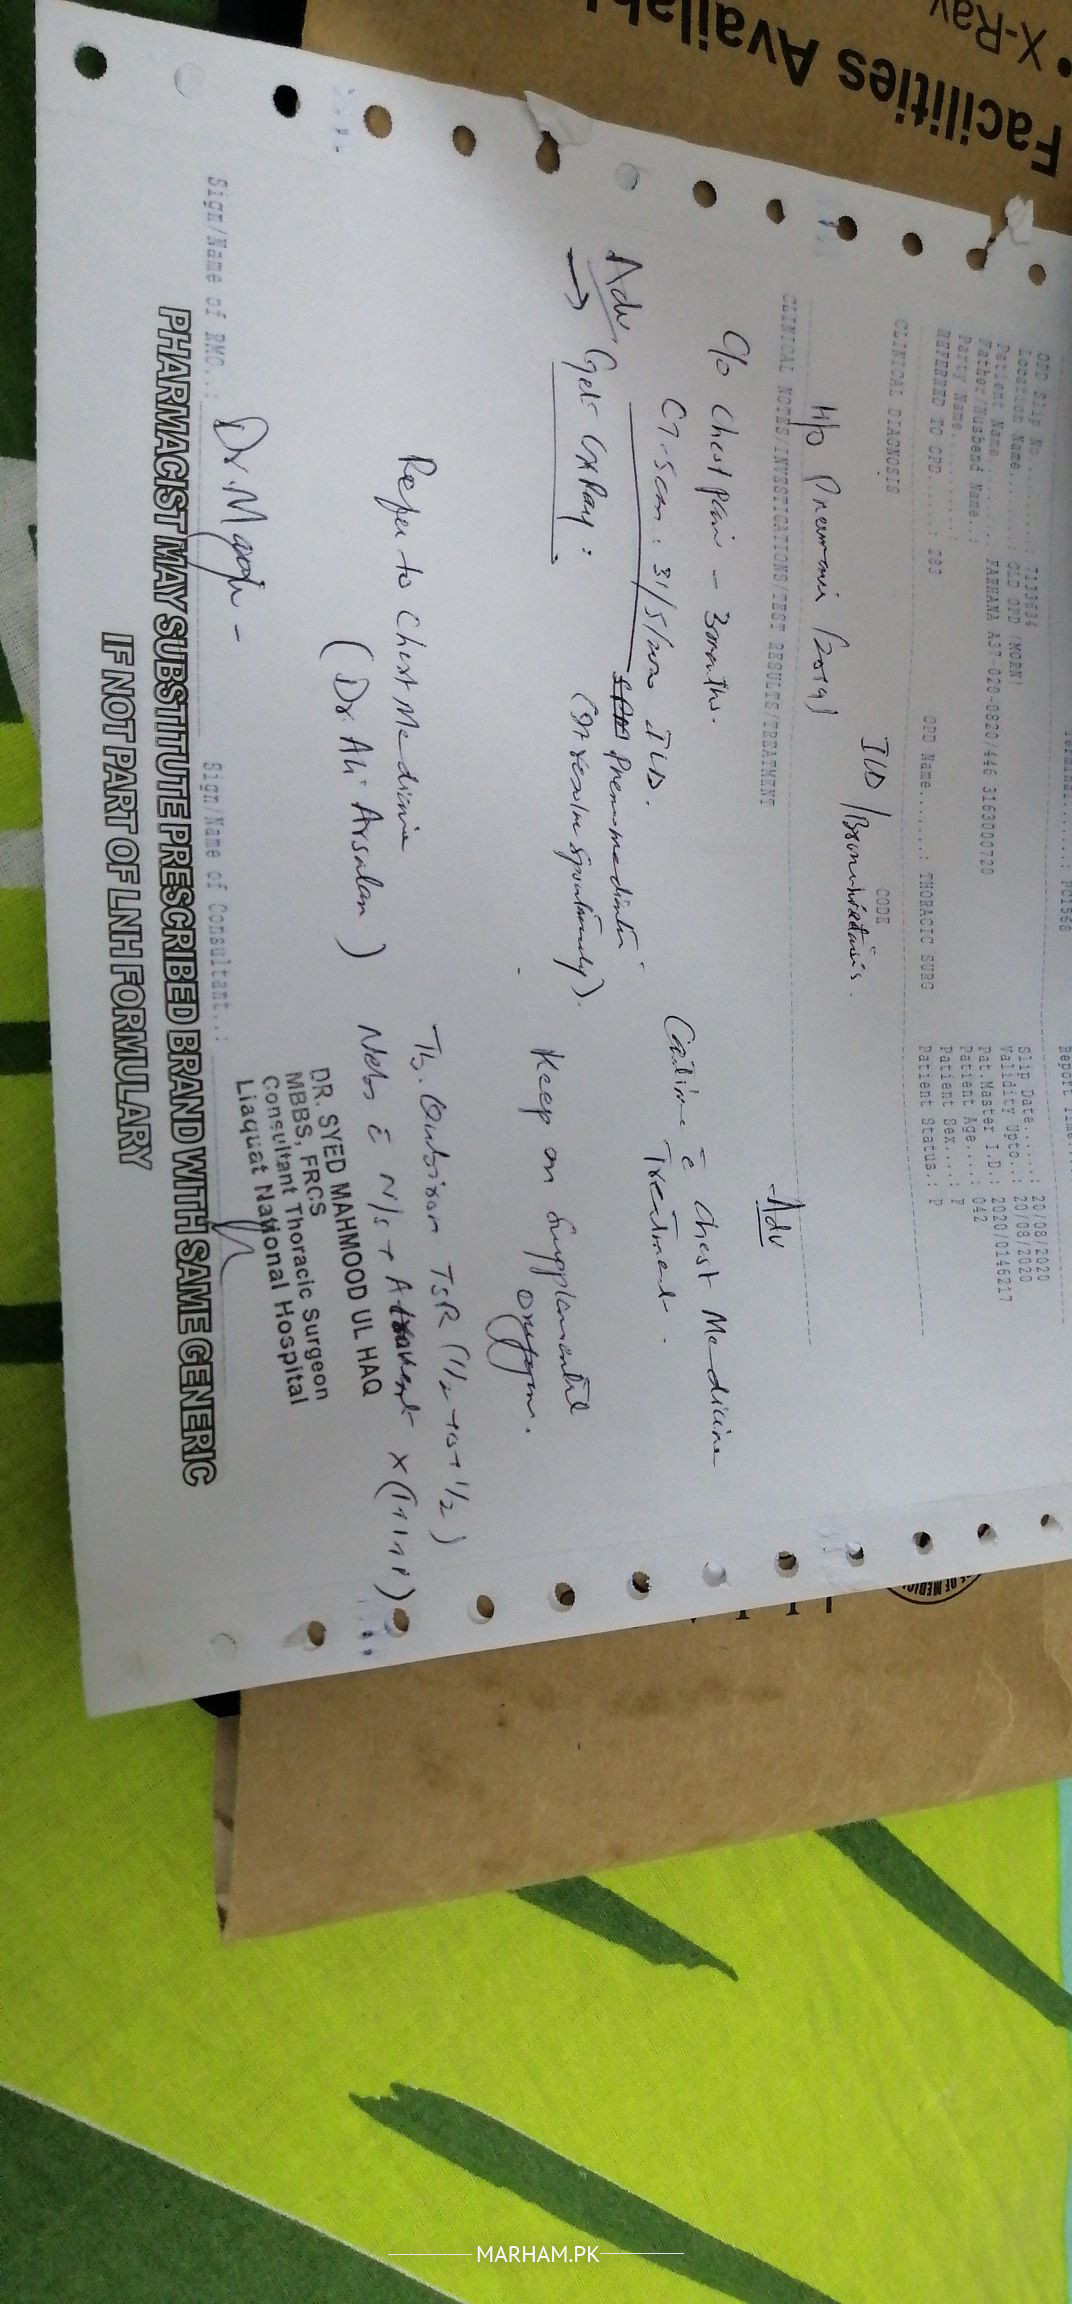 Facilities Available
• X-Ray
Report Time
OPD Slip No...: 7133634
Location Name...: OLD OPD (MORN)
Patient Name...: FARHANA A37-020-0820/446 3163000720
Father/Husband Name.:
Party Name...:
REFERED TO OPD...: 283
OPD Name...: THORACIC SURG
Slip Date...: 20/08/2020
Validity Upto..: 20/08/2020
Pat.Master I.D: 2020/0146217
Patient Age...: 042
Patient Sex...: F
Patient Status.: P
CLINICAL DIAGNOSIS
CODE
ILD / Bronchiectasis.
H/O Pneumonia (2019)
CLINICAL NOTES/INVESTIGATIONS/TEST RESULTS/TREATMENT
C/O Chest pain - 3 months.
CT-Scan: 31/5/2020 ILD.
Pneumomediastin
(It resolve spontaneously).
Adv
→ Get CXRay:
Refer to Chest Medicine
(Dr. Ali Arsalan)
Adv
Continue c̄ Chest Medicine
Treatment.
Keep on Supplemental
oxygen.
TSR (1/2 + 0 + 1/2)
Nebs c̄ N/S + Atrovent x (1+1+1)
DR. SYED MAHMOOD UL HAQ
MBBS, FRCS
Consultant Thoracic Surgeon
Liaquat National Hospital
Sign/Name of RMO.:
Sign/Name of Consultant..:
PHARMACIST MAY SUBSTITUTE PRESCRIBED BRAND WITH SAME GENERIC
IF NOT PART OF LNH FORMULARY
MARHAM.PK